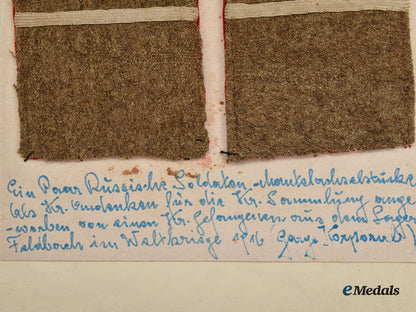 Ein Paar Russische Soldaten-Mantelachselstücke
als Kr. Andenken für die Kr. Sammlung ange-
worben, von einen Kr. Gefangenen aus dem Lager
Feldbach im Weltkriege 1916 Georg
eMedals